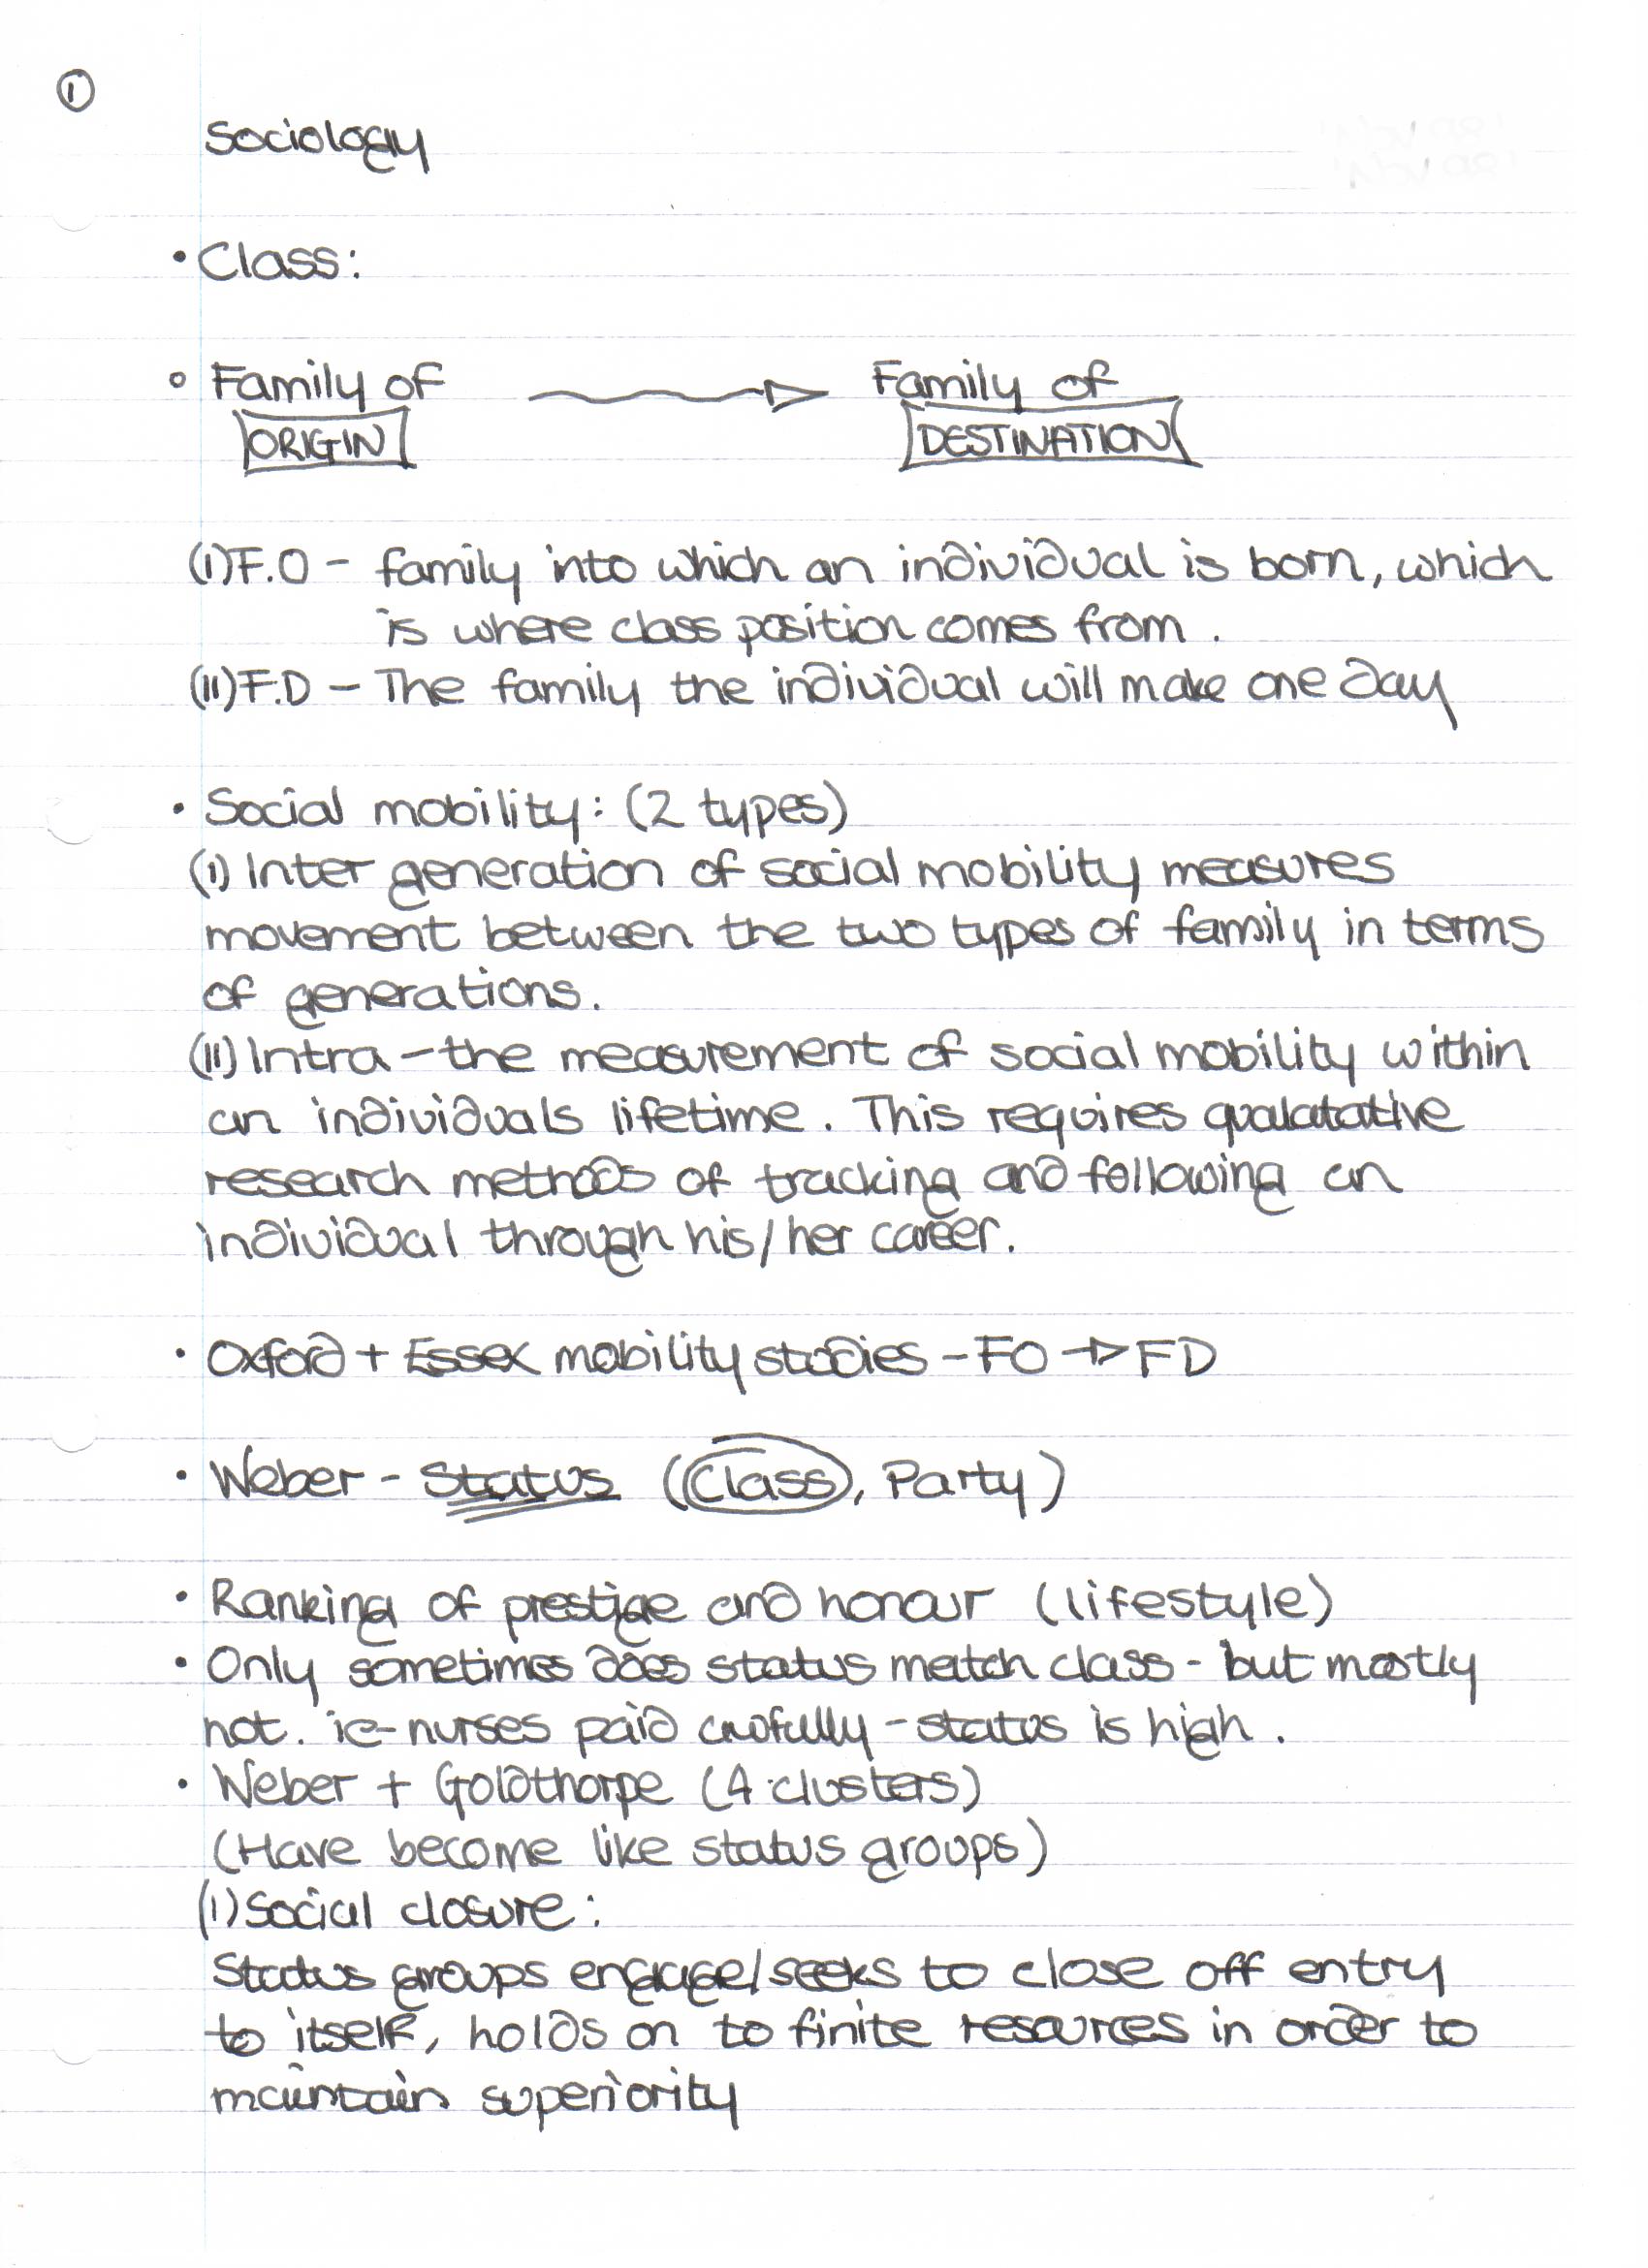 ①
Sociology
• Class:
° Family of → Family of
ORIGIN DESTINATION
(I) F.O - family into which an individual is born, which
is where class position comes from.
(II) F.D - The family the individual will make one day
• Social mobility: (2 types)
(I) Inter generation of social mobility measures
movement between the two types of family in terms
of generations.
(II) Intra - the measurement of social mobility within
an individuals lifetime. This requires qualatative
research methods of tracking and following an
individual through his/her career.
• Oxford + Essex mobility studies - FO → FD
• Weber - Status (Class, Party)
• Ranking of prestige and honour (lifestyle)
• Only sometimes does status match class - but mostly
not. ie - nurses paid awfully - status is high.
• Weber + Goldthorpe (4 clusters)
(Have become like status groups)
(I) Social closure:
Status groups engage/seeks to close off entry
to itself, holds on to finite resources in order to
maintain superiority